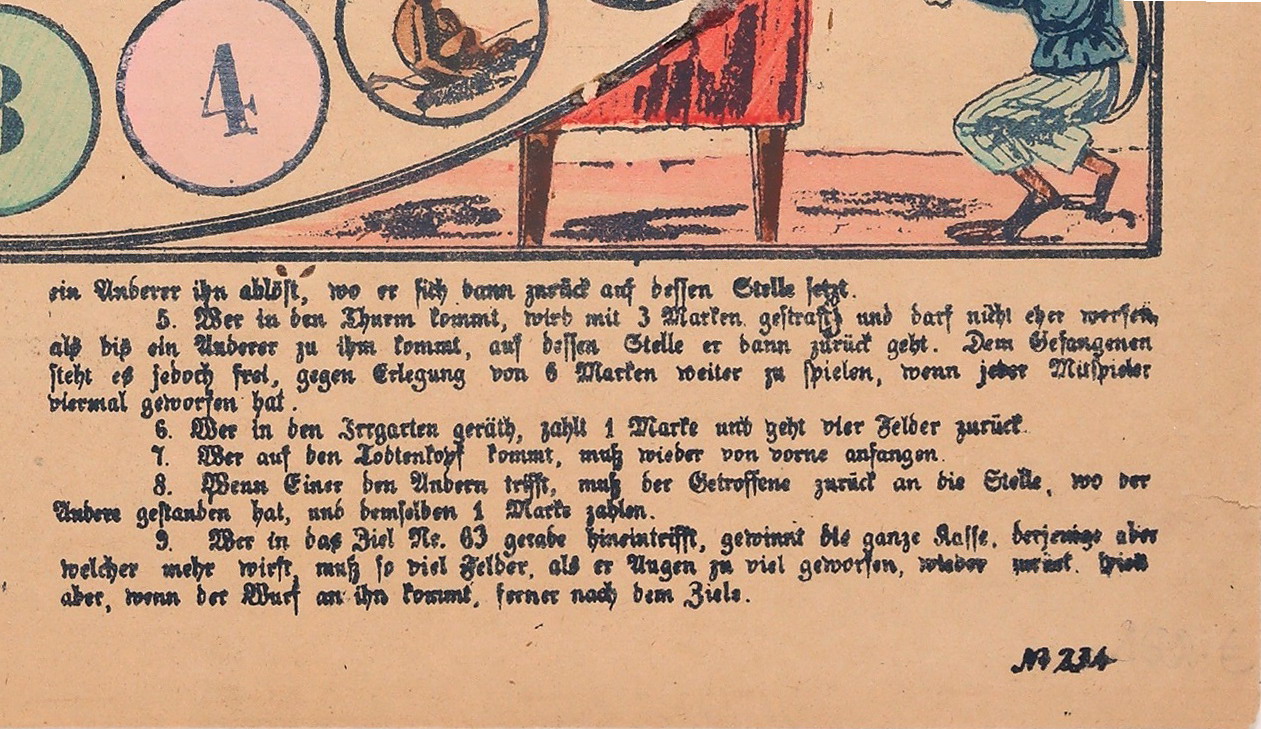 3 4
ein Anderer ihn ablöst, wo er sich dann zurück auf dessen Stelle setzt.
5. Wer in den Thurm kommt, wird mit 3 Marken gestraft und darf nicht eher werfen,
als bis ein Anderer zu ihm kommt, auf dessen Stelle er dann zurück geht. Dem Gefangenen
steht es jedoch frei, gegen Erlegung von 6 Marken weiter zu spielen, wenn jeder Mitspieler
viermal geworfen hat.
6. Wer in den Irrgarten geräth, zahlt 1 Marke und geht vier Felder zurück.
7. Wer auf den Todtenkopf kommt, muß wieder von vorne anfangen.
8. Wenn Einer den Andern trifft, muß der Getroffene zurück an die Stelle, wo der
Andere gestanden hat, und demselben 1 Marke zahlen.
9. Wer in das Ziel Nr. 63 gerade hineintrifft, gewinnt die ganze Kasse, derjenige aber
welcher mehr wirft, muß so viel Felder, als er Augen zu viel geworfen, wieder zurück.
aber, wenn der Wurf an ihn kommt, ferner nach dem Ziele.
№ 234